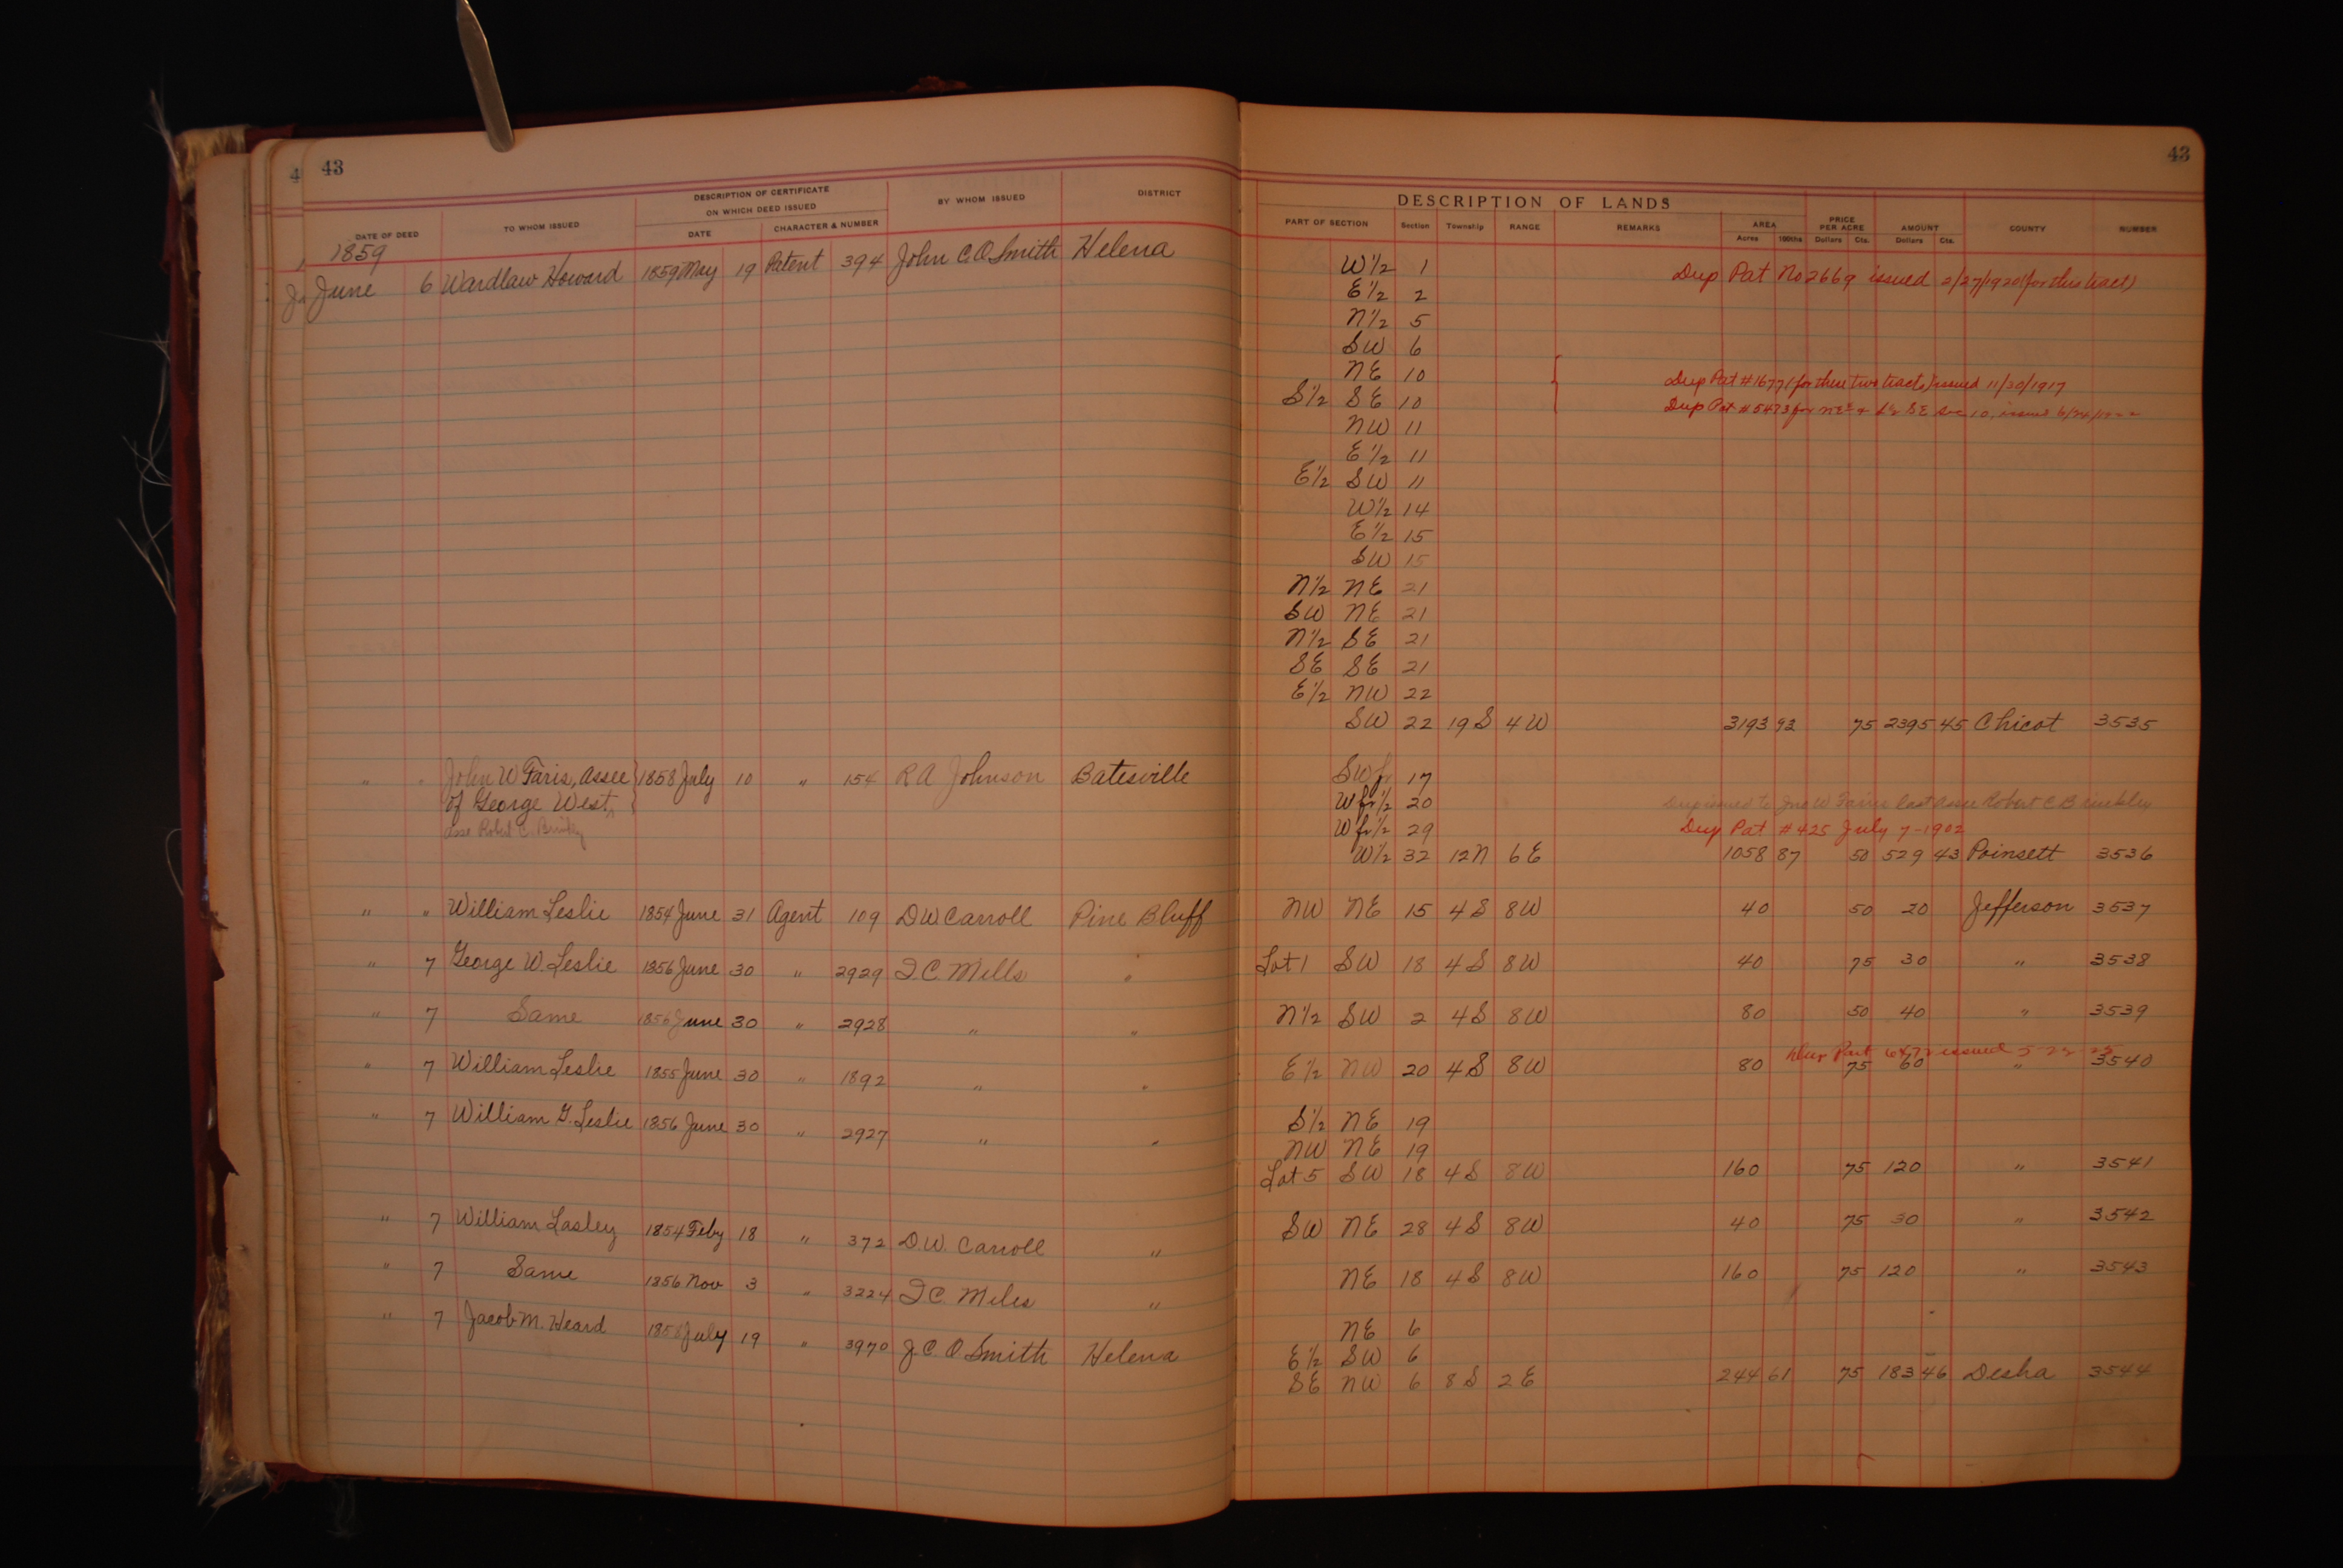 4 43
43
DESCRIPTION OF CERTIFICATE
ON WHICH DEED ISSUED
BY WHOM ISSUED DISTRICT
DATE OF DEED TO WHOM ISSUED DATE CHARACTER & NUMBER
DESCRIPTION OF LANDS
PART OF SECTION Section Township RANGE REMARKS AREA PRICE PER ACRE AMOUNT COUNTY NUMBER
Acres 100ths Dollars Cts. Dollars Cts.
1859
June 6 Wardlaw Howard 1859 May 19 Patent 394 John C O Smith Helena W 1/2 1 Dup Pat No 2669 issued 2/27/1920 (for this tract)
E 1/2 2
N 1/2 5
SW 6
NE 10 Dup Pat # 1677 (for these two tracts) issued 11/30/1917
S 1/2 SE 10 Dup Pat # 5473 for NE & SE Sec 10, issued
NW 11
E 1/2 11
E 1/2 SW 11
W 1/2 14
E 1/2 15
SW 15
N 1/2 NE 21
SW NE 21
N 1/2 SE 21
SE SE 21
E 1/2 NW 22
SW 22 19 S 4 W 3193 93 75 2395 45 Chicot 3535
" " John W Faris, Assee 1858 July 10 " 154 R A Johnson Batesville SW fr 17
of George West W fr 1/2 20 Dup issued to Jno W Faris last assee Robert C Brinkley
asse Robt C. Brinkley W fr 1/2 29 Dup Pat # 425 July 7-1902
W 1/2 32 12 N 6 E 1058 87 50 529 43 Poinsett 3536
" " William Leslie 1854 June 31 Agent 109 D W Carroll Pine Bluff NW NE 15 4 S 8 W 40 50 20 Jefferson 3537
" 7 George W. Leslie 1856 June 30 " 2929 I. C. Mills " Lot 1 SW 18 4 S 8 W 40 75 30 " 3538
" 7 Same 1856 June 30 " 2928 " " N 1/2 SW 2 4 S 8 W 80 50 40 " 3539
Dup Pat issued
" 7 William Leslie 1855 June 30 " 1892 " " E 1/2 NW 20 4 S 8 W 80 75 60 " 3540
" 7 William G. Leslie 1856 June 30 " 2927 " " S 1/2 NE 19
NW NE 19
Lot 5 SW 18 4 S 8 W 160 75 120 " 3541
" 7 William Lasley 1854 Feby 18 " 372 D. W. Carroll " SW NE 28 4 S 8 W 40 75 30 " 3542
" 7 Same 1856 Nov 3 " 3224 I C. Miles " NE 18 4 S 8 W 160 75 120 " 3543
" 7 Jacob M. Heard July 19 " 3970 J. C. O. Smith Helena NE 6
E 1/2 SW 6
SE NW 6 8 S 2 E 244 61 75 183 46 Desha 3544